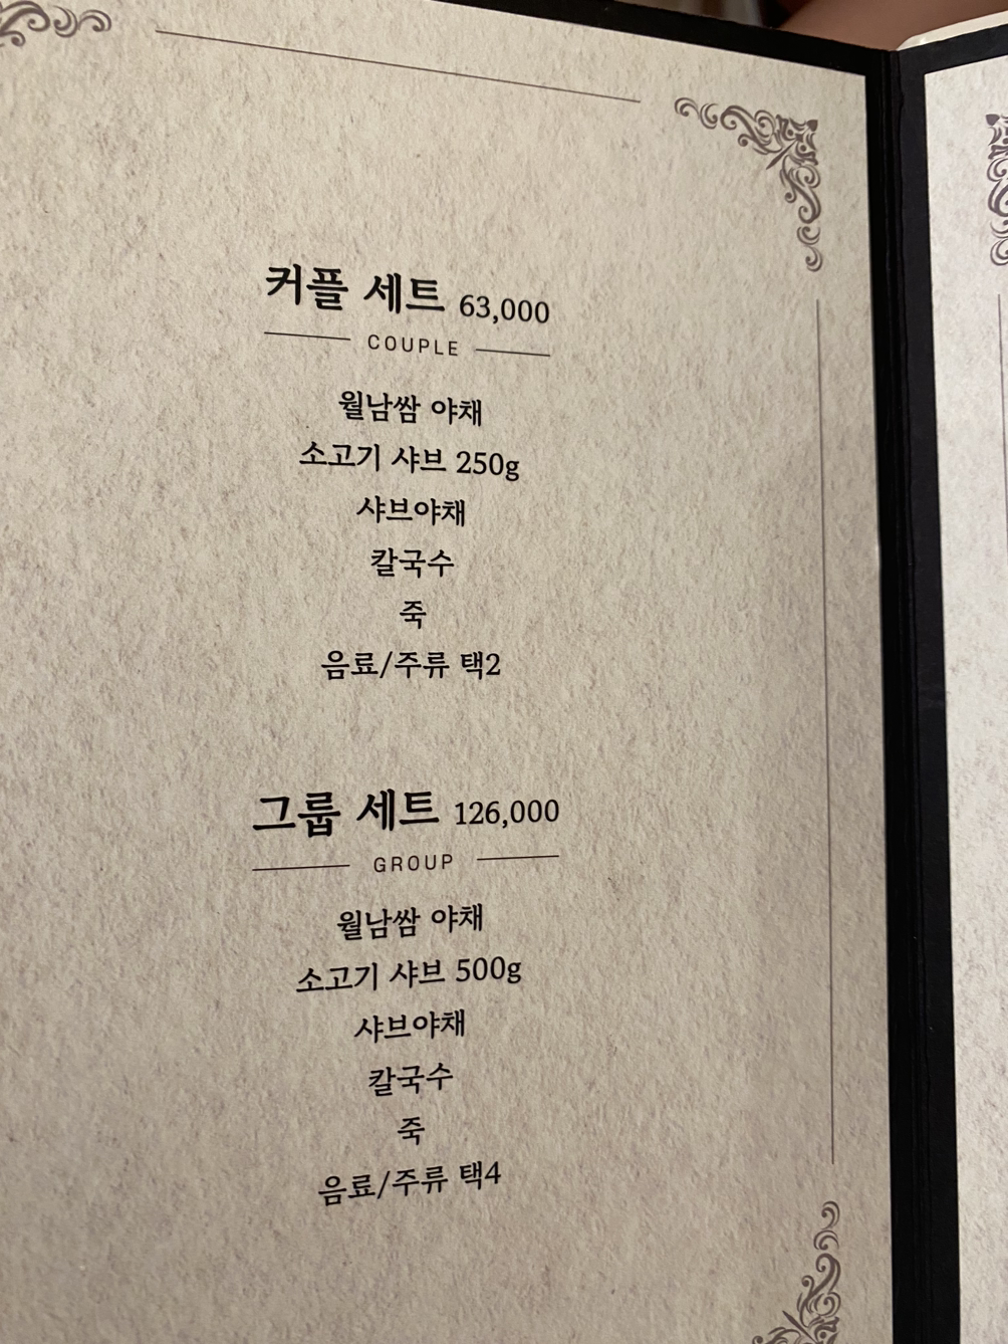 커플 세트 63,000
COUPLE
월남쌈 야채
소고기 샤브 250g
샤브야채
칼국수
죽
음료/주류 택2
그룹 세트 126,000
GROUP
월남쌈 야채
소고기 샤브 500g
샤브야채
칼국수
죽
음료/주류 택4